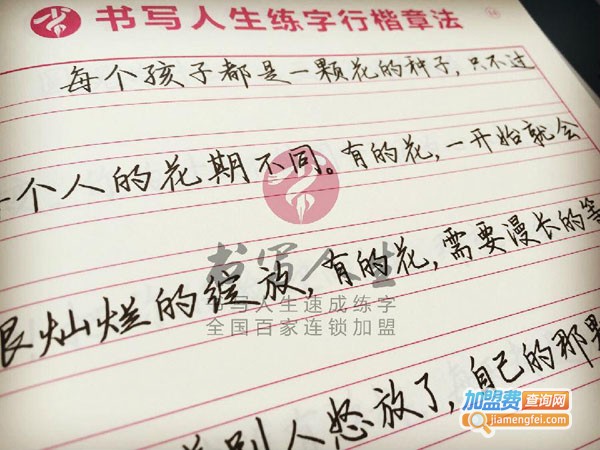 书写人生练字行楷章法
每个孩子都是一颗花的种子,只不过
个人的花期不同。有的花,一开始就会
灿烂的绽放,有的花,需要漫长的等
书写人生
书写人生速成练字
全国百家连锁加盟
别人怒放了,自己的那
加盟费查询网
jiamengfei.com